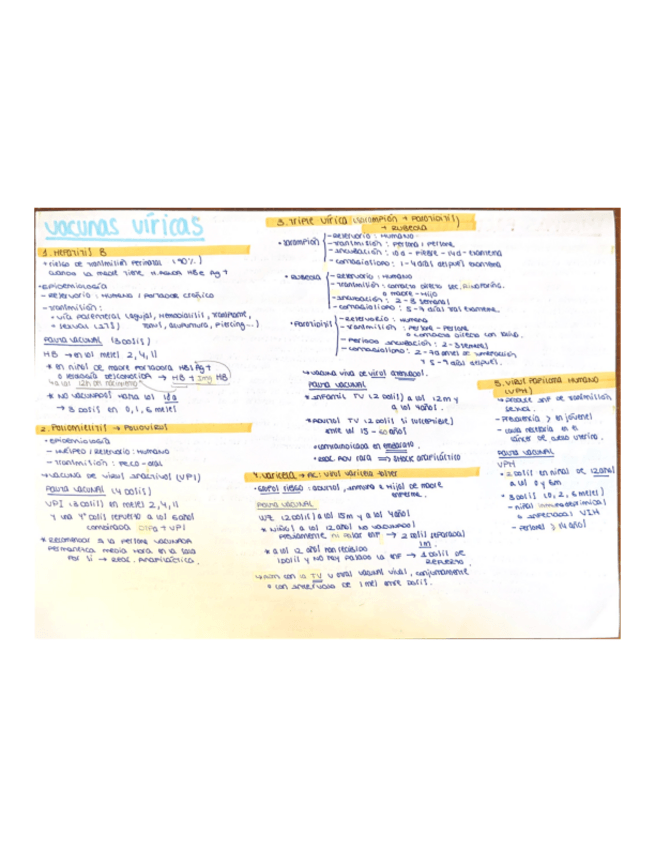 vacunas víricas
1. Hepatitis B
* riesgo de transmisión perinatal (90%)
cuando la madre tiene
• epidemiología
- reservorio: humano / portador crónico
- transmisión:
• vía parenteral
• sexual
tatus, acupuntura, piercing...)
pauta vacunal (3 dosis)
HB → en los meses 2, 4, 11
* en niños de madre portadora HBsAg+
o serología desconocida → HB + Ing HB
* No vacunados hasta los 18a
→ 3 dosis en 0, 1, 6 meses
2. Poliomielitis → Poliovirus
• epidemiología
- huésped / reservorio: humano
- transmisión: feco-oral
→ vacuna de virus inactivos (VPI)
pauta vacunal (4 dosis)
VPI (3 dosis) en meses 2, 4, 11
y una 4ª dosis refuerzo a los 6 años
combinada DTPa + VPI
* Recomendar a la persona vacunada
permanezca media hora en la sala
por si → reac. anafiláctica.
3. Triple vírica (sarampión + parotiditis)
+ rubeola
• sarampión
- reservorio: humano
- transmisión: persona / persona
- incubación: 10 d - fiebre - 14 d - exantema
- contagiosidad: 1-4 días después exantema
• rubeola
- reservorio: humano
- transmisión: contacto directo sec.
o madre - hijo
- incubación: 2-3 semanas
- contagiosidad: 5-7 días tras exantema.
• parotiditis
- reservorio: humano
- transmisión: persona - persona
o contacto directo con saliva.
- periodo incubación: 2-3 semanas
- contagiosidad: 2-7 d antes de
y 5-9 días después.
→ vacuna viva de virus atenuados.
pauta vacunal
* infantil TV (2 dosis) a los 12 m y
a los 4 años.
* adultos TV (2 dosis) si susceptibles
entre los
• contraindicada en embarazo.
• reac. adv rara ⟹ shock anafiláctico
4. varicela → AC: virus varicela zoster
• grupos riesgo: adultos, inmuno e hijos de madre
enferma.
pauta vacunal
VVZ (2 dosis) a los 15 m y a los 4 años
* niños a los 12 años no vacunados
previamente, ni pasar enf → 2 dosis separadas
1m.
* a los 12 años han recibido
1 dosis y no hay pasado la enf → 1 dosis de
refuerzo
→ admin con la TV u otras vacunas vivas, conjuntamente
o con intervalo de 1 mes entre dosis.
5. Virus papiloma humano
(VPH)
→ produce inf de transmisión
sexual.
- frecuencia > en jóvenes
- causa necesaria en el
cáncer de cuello uterino.
pauta vacunal
VPH
• 2 dosis en niñas de 12 años
a los 0 y 6m
• 3 dosis (0, 2, 6 meses)
- niñas inmunodeprimidas
o infectadas VIH